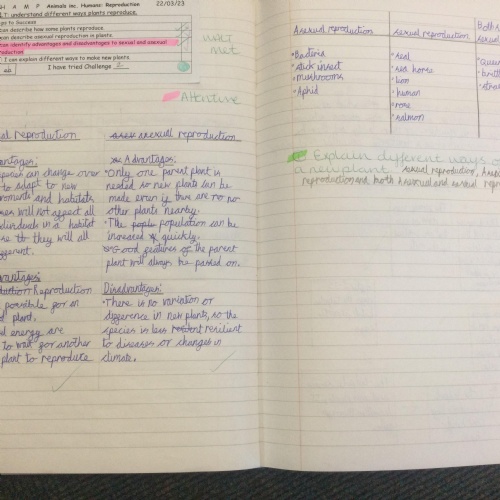 S H A M P Animals inc. Humans: Reproduction 22/03/23
LT: understand different ways plants reproduce.
to Success
can describe how some plants reproduce.
can describe asexual reproduction in plants.
can identify advantages and disadvantages to sexual and asexual
production
I can explain different ways to make new plants.
I have tried Challenge 2
WALT
met
Attentive
al Reproduction
asexuall reproduction
antages:
species can change over
to adapt to new
roments and habitats
will not affect all
individuals in a habitat
se to they will all
different.
vantages:
Reproduction
possible for an
d plant.
energy are
to wait for another
plant to reproduce
Advantages:
•Only one parent plant is
needed so new plants can be
made even if there are no
other plants nearby.
•The population can be
increased quickly.
•Good features of the parent
plant will always be passed on.
Disadvantages:
•There is no variation or
difference in new plants, so the
species is less resilient
to diseases or changes in
climate.
Asexual reproduction
sexual reproduction
Boths
sexual
•Bacteria
•stick insect
•mushrooms
•Aphid
•seal
•sea horse
•lion
•human
•rose
•salmon
Explain different ways o
a new plant
sexual reproduction,
reproduction and both Asexual and sexual repr